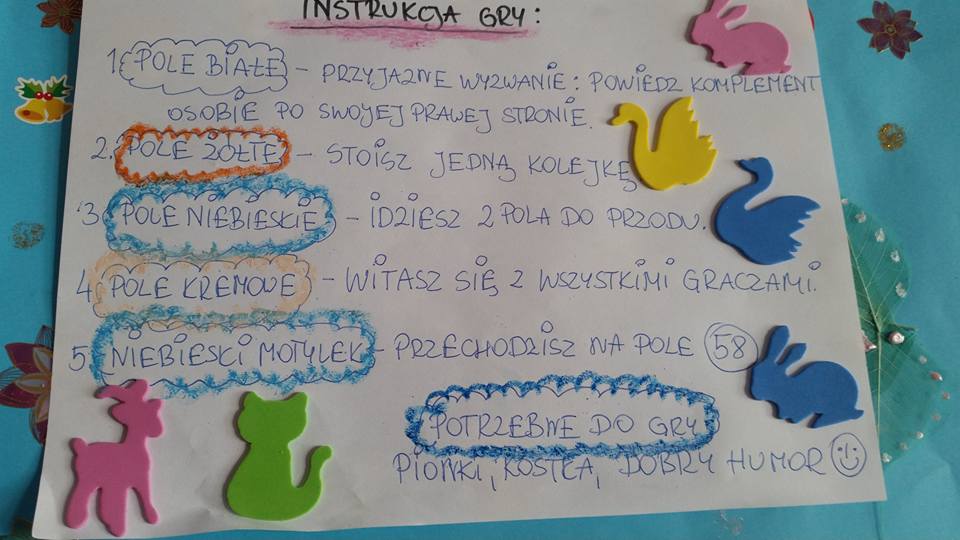 INSTRUKCJA GRY:
1. POLE BIAŁE – PRZYJAZNE WYZWANIE: POWIEDZ KOMPLEMENT
OSOBIE PO SWOJEJ PRAWEJ STRONIE.
2. POLE ŻÓŁTE – STOISZ JEDNĄ KOLEJKĘ
3. POLE NIEBIESKIE – IDZIESZ 2 POLA DO PRZODU.
4. POLE KREMOWE – WITASZ SIĘ Z WSZYSTKIMI GRACZAMI.
5. NIEBIESKI MOTYLEK – PRZECHODZISZ NA POLE 58
POTRZEBNE DO GRY
PIONKI, KOSTKA, DOBRY HUMOR